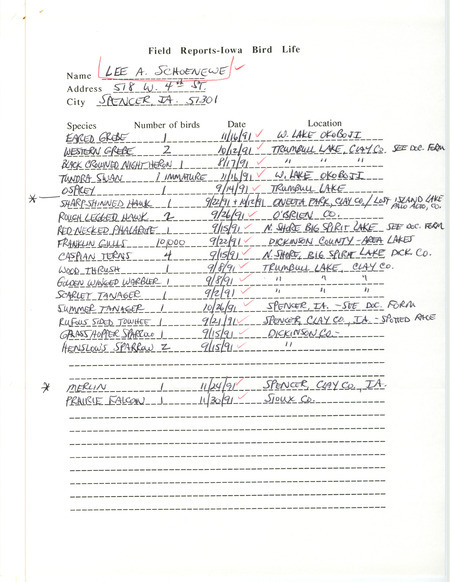 Field Reports-Iowa Bird Life
Name LEE A. SCHOENEWE
Address 518 W. 4th ST.
City SPENCER IA. 51301
Species Number of birds Date Location
EARED GREBE 1 11/16/91 W. LAKE OKOBOJI
WESTERN GREBE 2 10/12/91 TRUMBULL LAKE, CLAY CO. SEE DOC. FORM
BLACK CROWNED NIGHT HERON 1 8/17/91 " " "
TUNDRA SWAN 1 IMMATURE 11/16/91 W. LAKE OKOBOJI
OSPREY 1 9/14/91 TRUMBULL LAKE
* SHARP-SHINNED HAWK 1 9/22/91 + 10/2/91 ONEOTA PARK, CLAY CO./LOST ISLAND LAKE PALO ALTO, CO.
ROUGH LEGGED HAWK 2 9/26/91 O'BRIEN CO.
RED NECKED PHALAROPE 1 9/15/91 N. SHORE BIG SPIRIT LAKE SEE DOC. FORM
FRANKLIN GULLS 10,000 9/22/91 DICKINSON COUNTY - AREA LAKES
CASPIAN TERNS 4 9/15/91 N. SHORE, BIG SPIRIT LAKE DCK. CO.
WOOD THRUSH 1 9/8/91 TRUMBULL LAKE, CLAY CO.
GOLDEN WINGED WARBLER 1 9/8/91 " " "
SCARLET TANAGER 1 9/2/91 " " "
SUMMER TANAGER 1 10/26/91 SPENCER, IA. - SEE DOC. FORM
RUFUS SIDED TOWHEE 1 9/21/91 SPENCER, CLAY CO., IA. - SPOTTED RACE
GRASSHOPPER SPARROW 1 9/15/91 DICKINSON CO. -
HENSLOWS SPARROW 2 9/15/91 "
* MERLIN 1 11/24/91 SPENCER, CLAY CO., IA.
PRAIRIE FALCON 1 11/30/91 SIOUX CO.